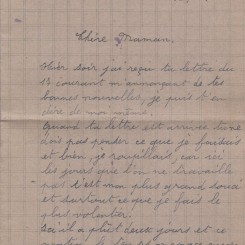 Chère Maman,
Hier soir j'ai reçu ta lettre du
13 courant m'annonçant de tes
bonnes nouvelles, je puis t'en
dire de moi même.
Quand ta lettre est arrivée tu ne
dois pas penser ce que je faisais
et bien, je roupillais, car ici
les jours que l'on ne travaille
pas c'est mon plus grand souci
et surtout ce que je fais le
plus volontier.
Ici il a plut deux jours et ce